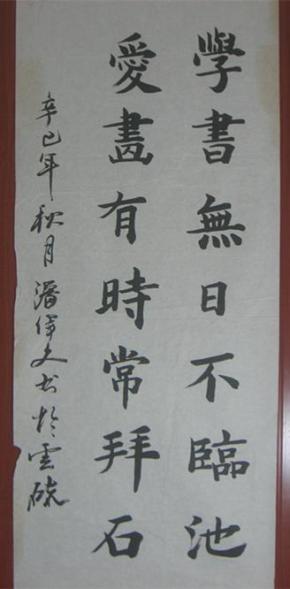 學書無日不臨池
愛畫有時常拜石
辛巳年秋月潘伟文书於雲硯